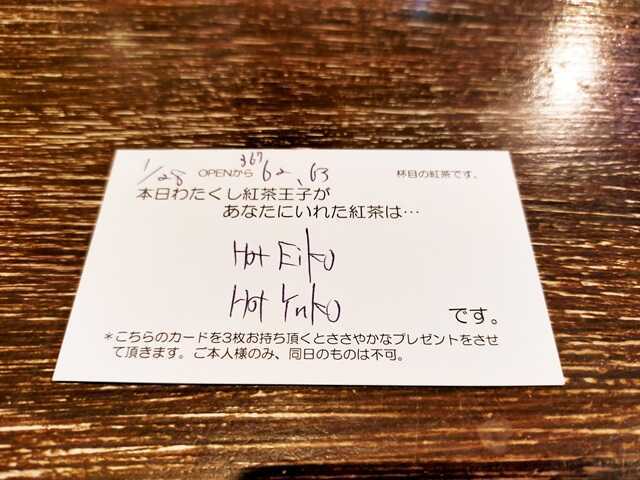 1/28 OPENから 36762、63 杯目の紅茶です。
本日わたくし紅茶王子が
あなたにいれた紅茶は…
Hot Eiko
Hot Yuko
です。
＊こちらのカードを3枚お持ち頂くとささやかなプレゼントをさせ
て頂きます。ご本人様のみ、同日のものは不可。